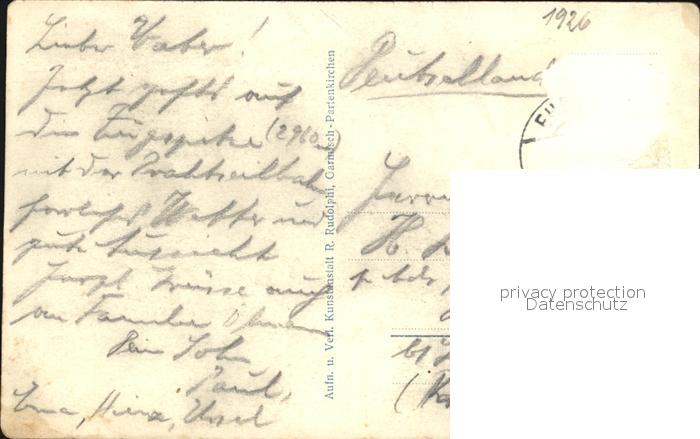 1926
Lieber Vater!
Jetzt gehts auf
die Zugspitze (2960 m)
mit der Drahtseilbahn
herrliches Wetter und
gute Aussicht
Herzl Grüsse auch
an Familie
Dein Sohn
Paul,
Erna, Ursel
Aufn. u. Verl. Kunstanstalt R. Rudolphi, Garmisch-Partenkirchen
Deutschland
Herrn
H.
privacy protection
Datenschutz